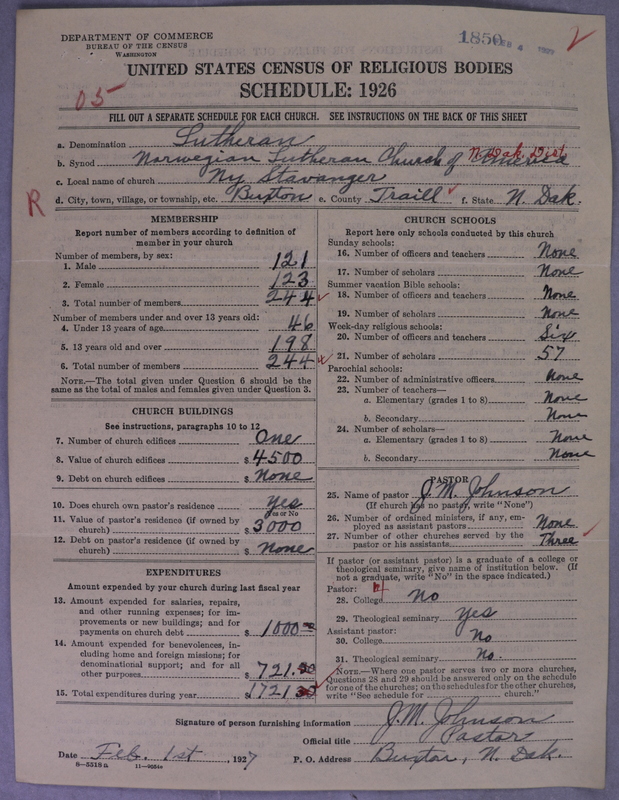 DEPARTMENT OF COMMERCE
BUREAU OF THE CENSUS
WASHINGTON
1850 FEB 4 1927
UNITED STATES CENSUS OF RELIGIOUS BODIES
SCHEDULE: 1926
05
FILL OUT A SEPARATE SCHEDULE FOR EACH CHURCH. SEE INSTRUCTIONS ON THE BACK OF THIS SHEET
a. Denomination Lutheran
b. Synod Norwegian Lutheran Church of America N. Dak. Dist
c. Local name of church Ny Stavanger
d. City, town, village, or township, etc. Buxton e. County Traill f. State N. Dak.
R
MEMBERSHIP
Report number of members according to definition of
member in your church
Number of members, by sex:
1. Male 121
2. Female 123
3. Total number of members 244
Number of members under and over 13 years old:
4. Under 13 years of age 46
5. 13 years old and over 198
6. Total number of members 244
NOTE.—The total given under Question 6 should be
same as the total of males and females given under Question 3.
CHURCH BUILDINGS
See instructions, paragraphs 10 to 12
7. Number of church edifices One
8. Value of church edifices $ 4500
9. Debt on church edifices $ None
10. Does church own pastor's residence Yes
Yes or No
11. Value of pastor's residence (if owned by
church) $ 3000
12. Debt on pastor's residence (if owned by
church) $ None
EXPENDITURES
Amount expended by your church during last fiscal year
13. Amount expended for salaries, repairs,
and other running expenses; for im-
provements or new buildings; and for
payments on church debt $ 1000
14. Amount expended for benevolences, in-
cluding home and foreign missions; for
denominational support; and for all
other purposes $ 721.
15. Total expenditures during year $ 1721
CHURCH SCHOOLS
Report here only schools conducted by this church
Sunday schools:
16. Number of officers and teachers None
17. Number of scholars None
Summer vacation Bible schools:
18. Number of officers and teachers None
19. Number of scholars None
Week-day religious schools:
20. Number of officers and teachers Six
21. Number of scholars 57
Parochial schools:
22. Number of administrative officers None
23. Number of teachers—
a. Elementary (grades 1 to 8) None
b. Secondary None
24. Number of scholars—
a. Elementary (grades 1 to 8) None
b. Secondary None
PASTOR
25. Name of pastor J. M. Johnson
(If church has no pastor, write "None")
26. Number of ordained ministers, if any, em-
ployed as assistant pastors None
27. Number of other churches served by the
pastor or his assistants Three
If pastor (or assistant pastor) is a graduate of a college or
theological seminary, give name of institution below. (If
not a graduate, write "No" in the space indicated.)
Pastor:
28. College No
29. Theological seminary Yes
Assistant pastor:
30. College No
31. Theological seminary No.
NOTE.—Where one pastor serves two or more churches,
Questions 28 and 29 should be answered only on the schedule
for one of the churches; on the schedules for the other churches,
write "See schedule for church."
Signature of person furnishing information J. M. Johnson
Official title Pastor
Date Feb. 1st, 1927 P. O. Address Buxton, N. Dak.
8—5518a